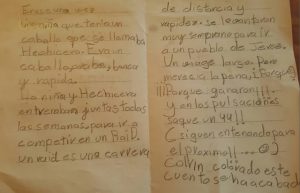 Erase una vez
una niña que tenía un
caballo que se llamaba
Hechicero. Era un
caballo, blanco
y rapido.
La niña y Hechicero
entrenaban juntas todas
las semanas, para ir a
competir en un Raid.
un raid es una carrera
de distancia y
rapidez. se levantaron
muy temprano para ir
a un pueblo de Jerez.
Un viage largo. Pero
merecia la pena, ¿Porque?
¡¡¡Porque ganaron!!!
y en las pulsaciones
saque un 44!!
(siguen entrenando para
el proximo!!...)
Colorin colorado este
cuento se ha acabado